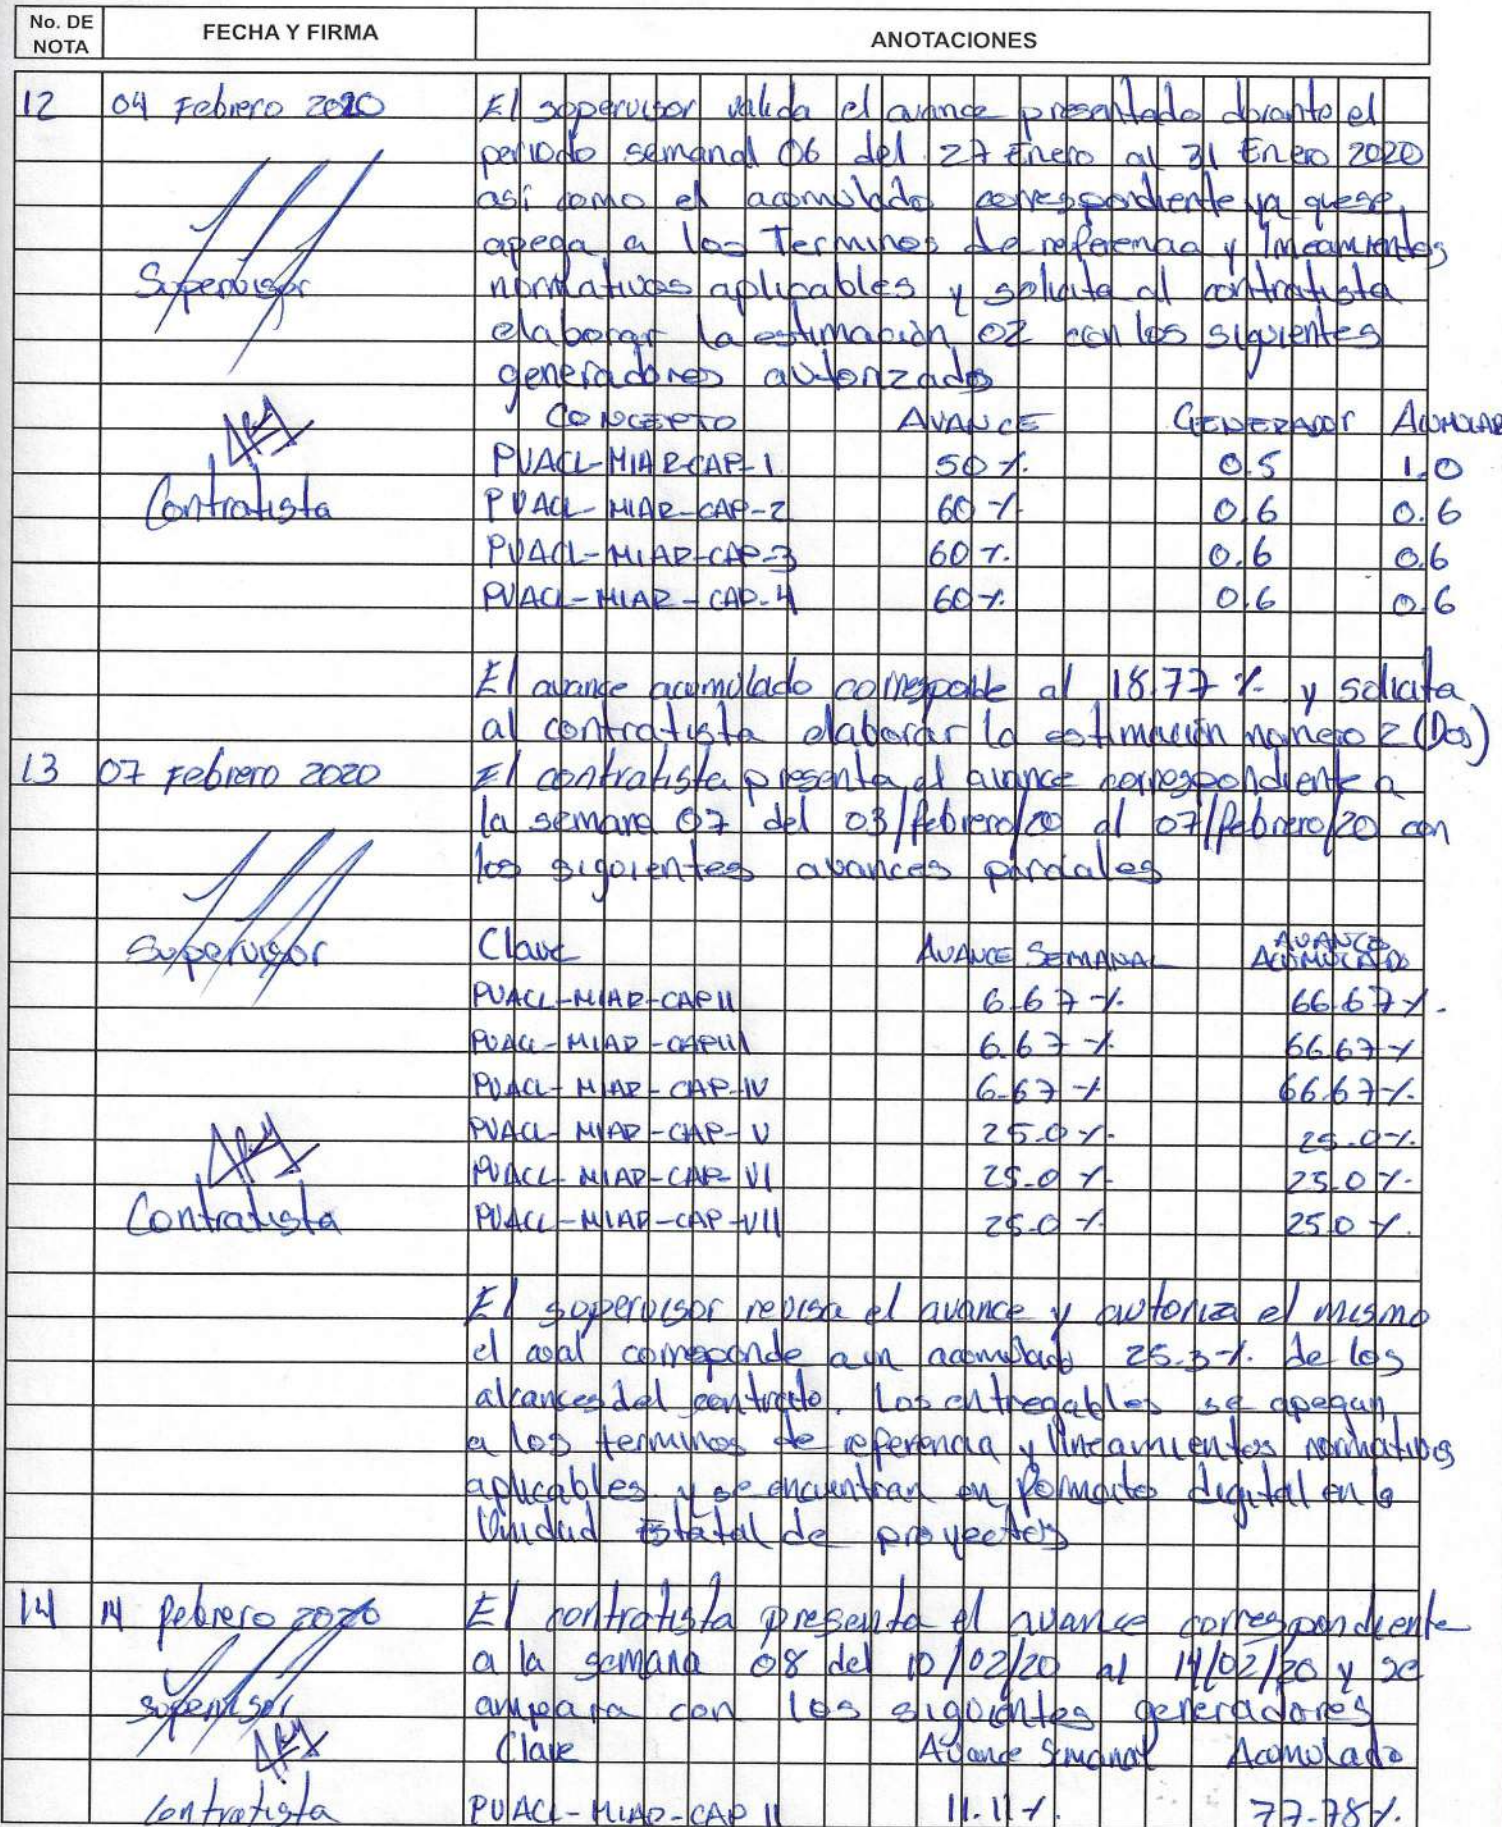 No. DE NOTA FECHA Y FIRMA ANOTACIONES
12 04 Febrero 2020 El sopervisor valida el avance presentado dorante el
periodo semanal 06 del 27 Enero al 31 Enero 2020
así como el acomulado correspondiente ya que se
apega a los Terminos de referencia y lineamientos
Supervisor normativos aplicables y solicita al contratista
elaborar la estimación 02 con los siguientes
generadores autorizados
CONCEPTO AVANCE GENERADOR ACUMULAR
PVACL-MIAR-CAP-1 50% 0.5 1.0
Contratista PVACL-MIAR-CAP-2 60% 0.6 0.6
PVACL-MIAR-CAP-3 60% 0.6 0.6
PVACL-MIAR-CAP-4 60% 0.6 0.6
El avance acumulado corresponde al 18.77% y solicita
al contratista elaborar la estimación número 2 (Dos)
13 07 Febrero 2020 El contratista presenta el avance correspondiente a
la semana 07 del 03/febrero/20 al 07/febrero/20 con
los siguientes avances parciales
Supervisor Clave AVANCE SEMANAL AVANCE ACUMULADO
PVACL-MIAR-CAP II 6.67% 66.67%.
PVACL-MIAR-CAP III 6.67% 66.67%
PVACL-MIAR-CAP-IV 6.67% 66.67%
PVACL-MIAR-CAP-V 25.0% 25.0%
PVACL-MIAR-CAP-VI 25.0% 25.0%
Contratista PVACL-MIAR-CAP-VII 25.0% 25.0%
El sopervisor revisa el avance y autoriza el mismo
el cual corresponde a un acomulado 25.3% de los
alcances del contrato. Los entregables se apegan
a los terminos de referencia y lineamientos normativos
aplicables y se encuentran en formato digital en la
Unidad Estatal de proyectos
14 14 febrero 2020 El contratista presenta el avance correspondiente
a la semana 08 del 10/02/20 al 14/02/20 y se
supervisor ampara con los siguientes generadores
Clave Avance Semanal Acomulado
Contratista PVACL-MIAR-CAP II 11.11% 77.78%.